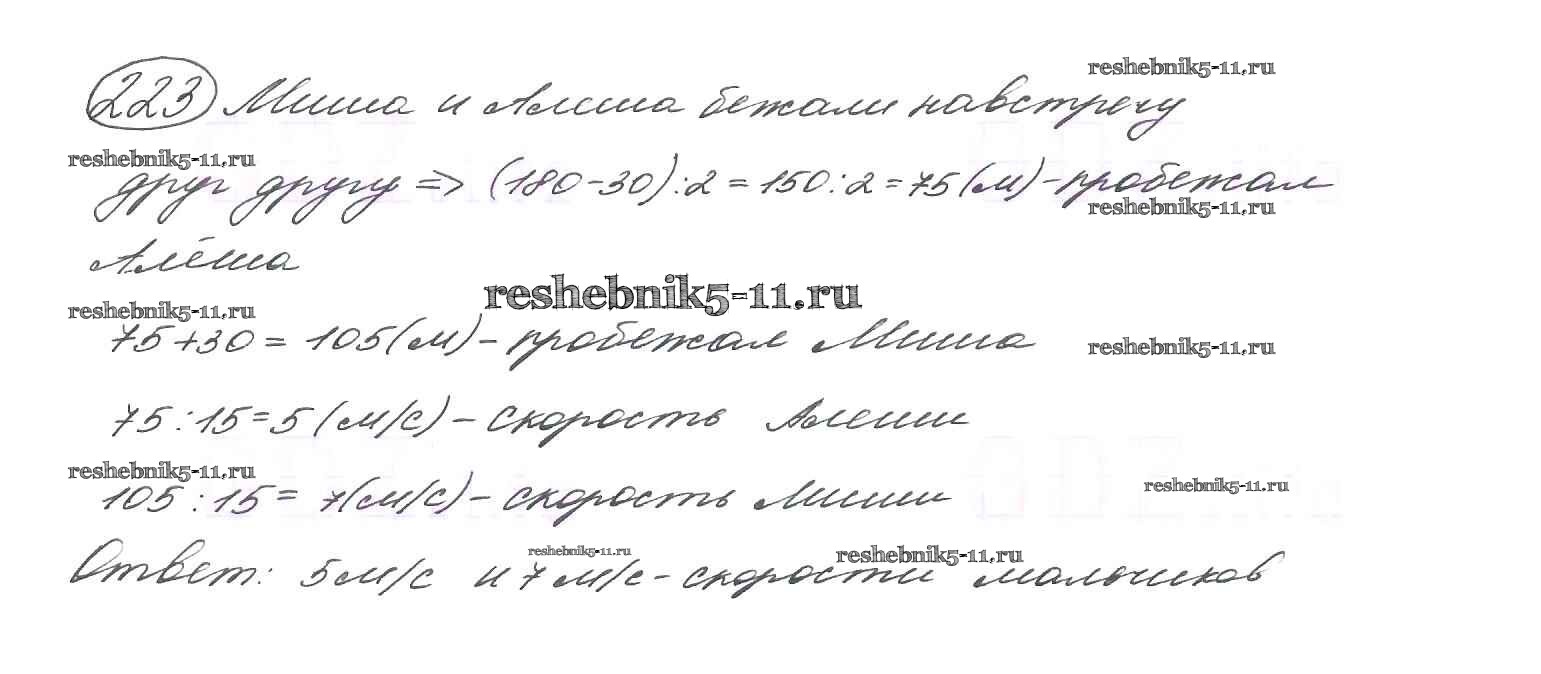 reshebnik5-11.ru
223 Миша и Алеша бежали навстречу
reshebnik5-11.ru
друг другу => (180-30):2=150:2=75(м)-пробежал
reshebnik5-11.ru
Алёша
reshebnik5-11.ru
reshebnik5-11.ru
75+30=105(м)-пробежал Миша
reshebnik5-11.ru
75:15=5(м/с)-скорость Алеши
reshebnik5-11.ru
105:15=7(м/с)-скорость Миши
reshebnik5-11.ru
reshebnik5-11.ru
reshebnik5-11.ru
Ответ: 5м/с и 7м/с-скорости мальчиков